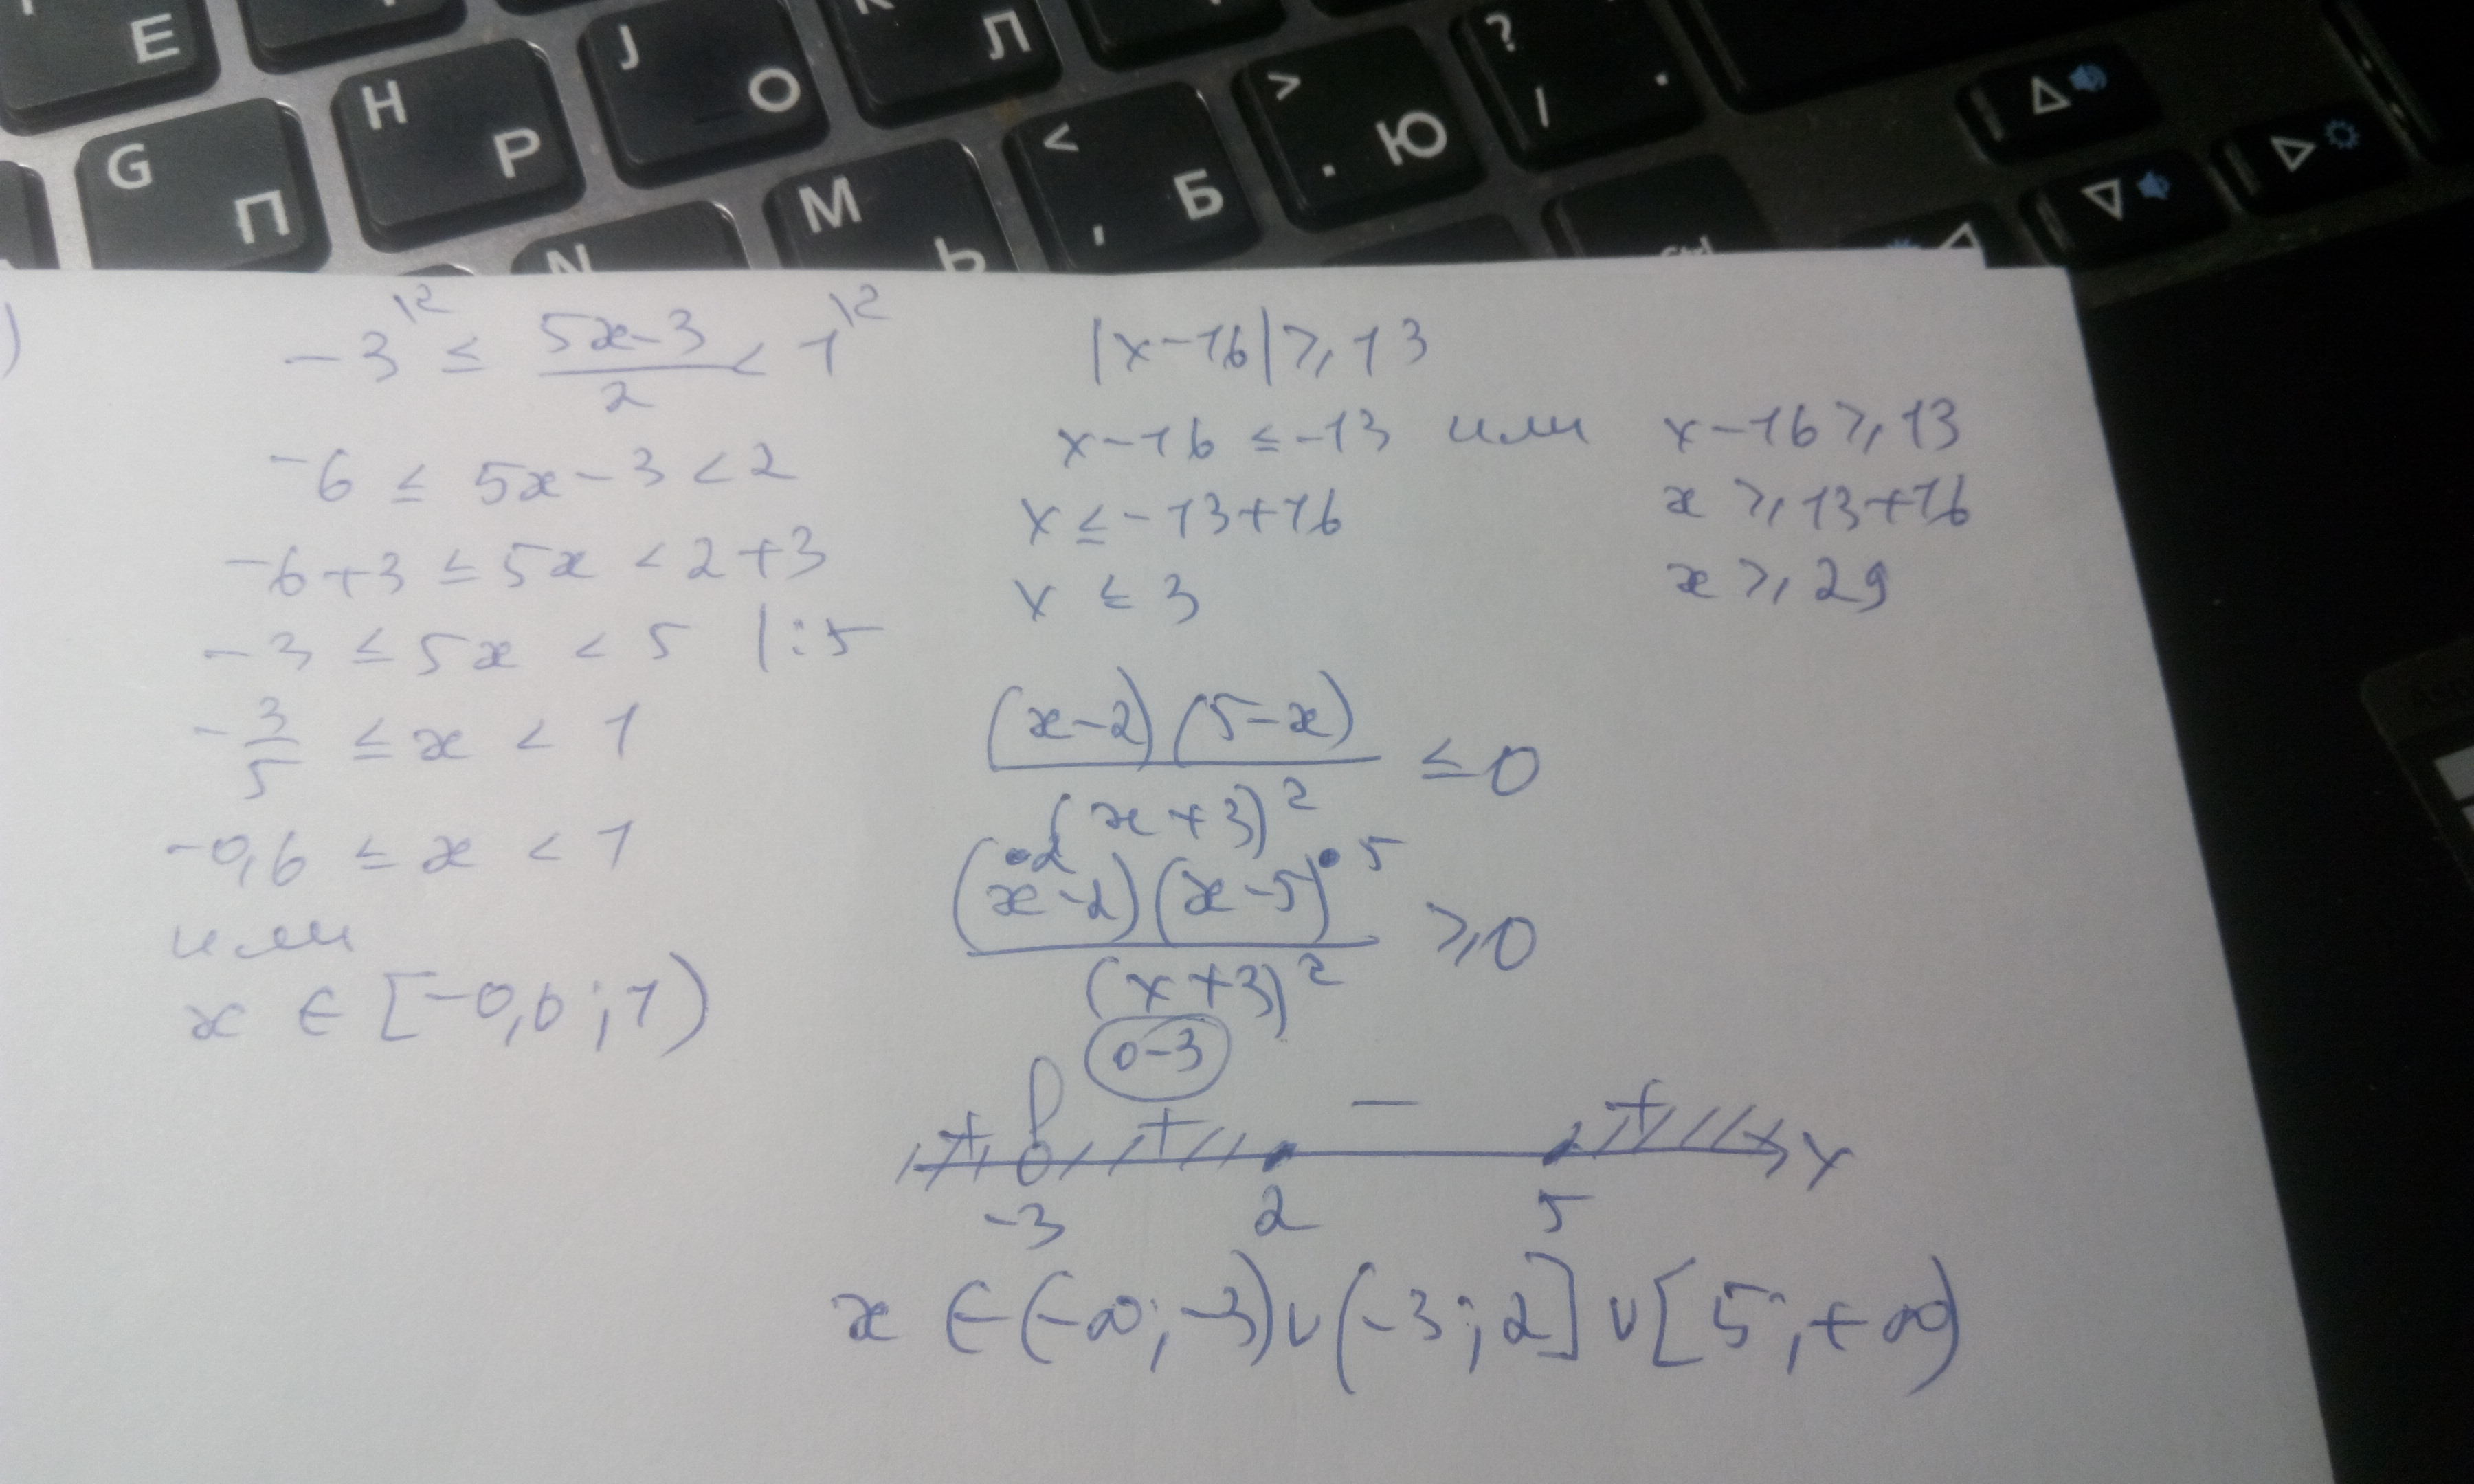 E
J
О
Л
?
/
.
H
Р
<
,
Б
>
.
Ю
G
П
M
Ь
N
Ctrl
)
-3^{|2} ≤ \frac{5x-3}{2} < 1^{|2}
-6 ≤ 5x-3 < 2
-6+3 ≤ 5x < 2+3
-3 ≤ 5x < 5 |:5
-\frac{3}{5} ≤ x < 1
-0,6 ≤ x < 1
или
x ∈ [-0,6;1)
|x-16| ≥ 13
x-16 ≤ -13 или x-16 ≥ 13
x ≤ -13+16 x ≥ 13+16
x ≤ 3 x ≥ 29
\frac{(x-2)(5-x)}{(x+3)^2} ≤ 0
•2 •5
\frac{(x-2)(x-5)}{(x+3)^2} ≥ 0
o-3
+ + - + x
-3 2 5
x ∈ (-∞;-3)∪(-3;2]∪[5;+∞)